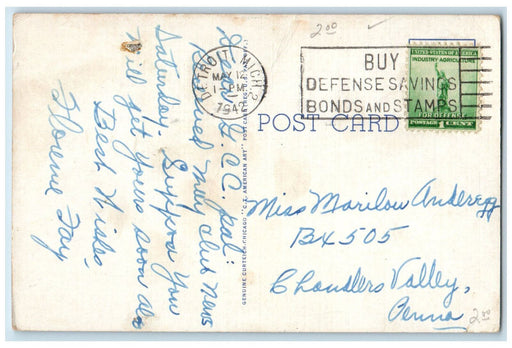 2.00
DETROIT, MICH. 2
MAY 12
1-PM
1942
BUY
DEFENSE SAVINGS
BONDS AND STAMPS
INDUSTRY-AGRICULTURE
FOR DEFENSE
POSTAGE 1 CENT
POST CARD
Dear U.C.C. pal:
Received my club News
Saturday. Suppose you
will get yours soon also
Best Wishes,
Florence Fay
GENUINE CURTEICH-CHICAGO "C.T. AMERICAN ART" POST CARD
Miss Marilou Anderegg
BX 505
Chandlers Valley,
Penna
2.00